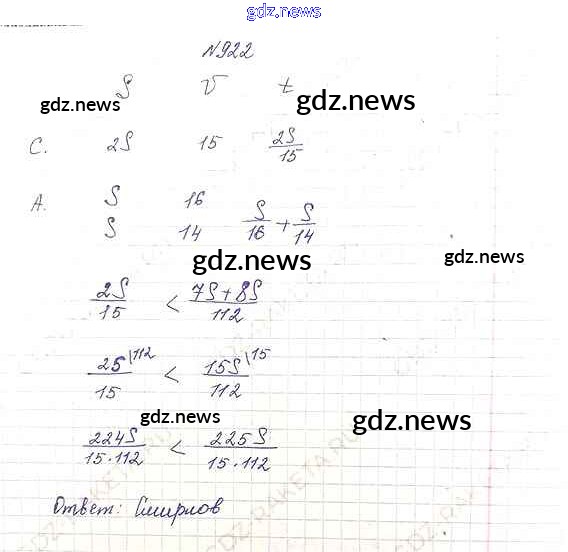 gdz.news
№922
S V t
gdz.news gdz.news
С. 2S 15 2S/15
А. S 16
S 14 S/16 + S/14
gdz.news gdz.news
2S/15 < 7S+8S/112
2S\112/15 < 15S\15/112
gdz.news gdz.news
224S/15·112 < 225S/15·112
Ответ: Смирнов